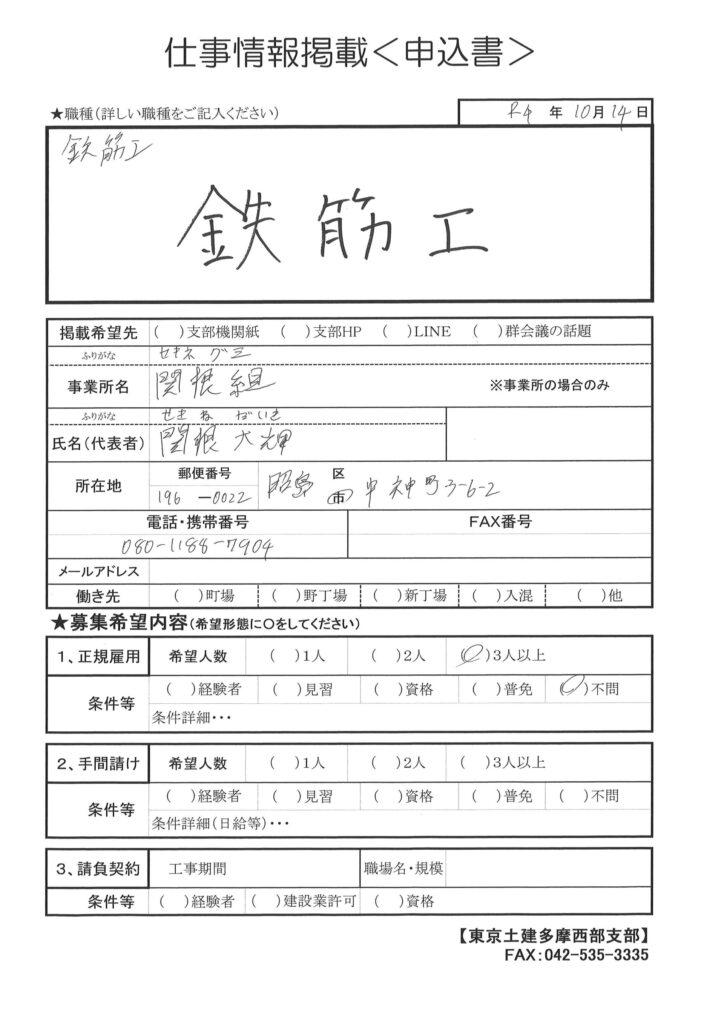 仕事情報掲載＜申込書＞
★職種（詳しい職種をご記入ください） R4 年 10月 14日
鉄筋工
鉄筋工
掲載希望先 （ ）支部機関紙 （ ）支部HP （ ）LINE （ ）群会議の話題
ふりがな セキネ グミ
事業所名 関根組 ※事業所の場合のみ
ふりがな せきね だいき
氏名（代表者） 関根 大輝
所在地 郵便番号 196 -0022 昭島 区 市 中神町3-6-2
電話・携帯番号 FAX番号
080-1188-7904
メールアドレス
働き先 （ ）町場 （ ）野丁場 （ ）新丁場 （ ）入混 （ ）他
★募集希望内容（希望形態に○をしてください）
1、正規雇用 希望人数 （ ）1人 （ ）2人 （○）3人以上
条件等 （ ）経験者 （ ）見習 （ ）資格 （ ）普免 （○）不問
条件詳細・・・
2、手間請け 希望人数 （ ）1人 （ ）2人 （ ）3人以上
条件等 （ ）経験者 （ ）見習 （ ）資格 （ ）普免 （ ）不問
条件詳細（日給等）・・・
3、請負契約 工事期間 職場名・規模
条件等 （ ）経験者 （ ）建設業許可 （ ）資格
【東京土建多摩西部支部】
FAX：042-535-3335